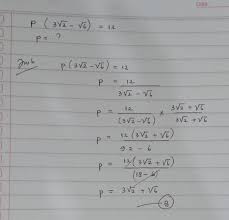 P (3√2 - √6) = 12
P = ?
P (3√2 - √6) = 12
P = 12 / (3√2 - √6)
P = 12 / (3√2 - √6) × (3√2 + √6) / (3√2 + √6)
P = 12 (3√2 + √6) / 
P = 12 (3√2 + √6) / (18 - 6)
P = 3√2 + √6